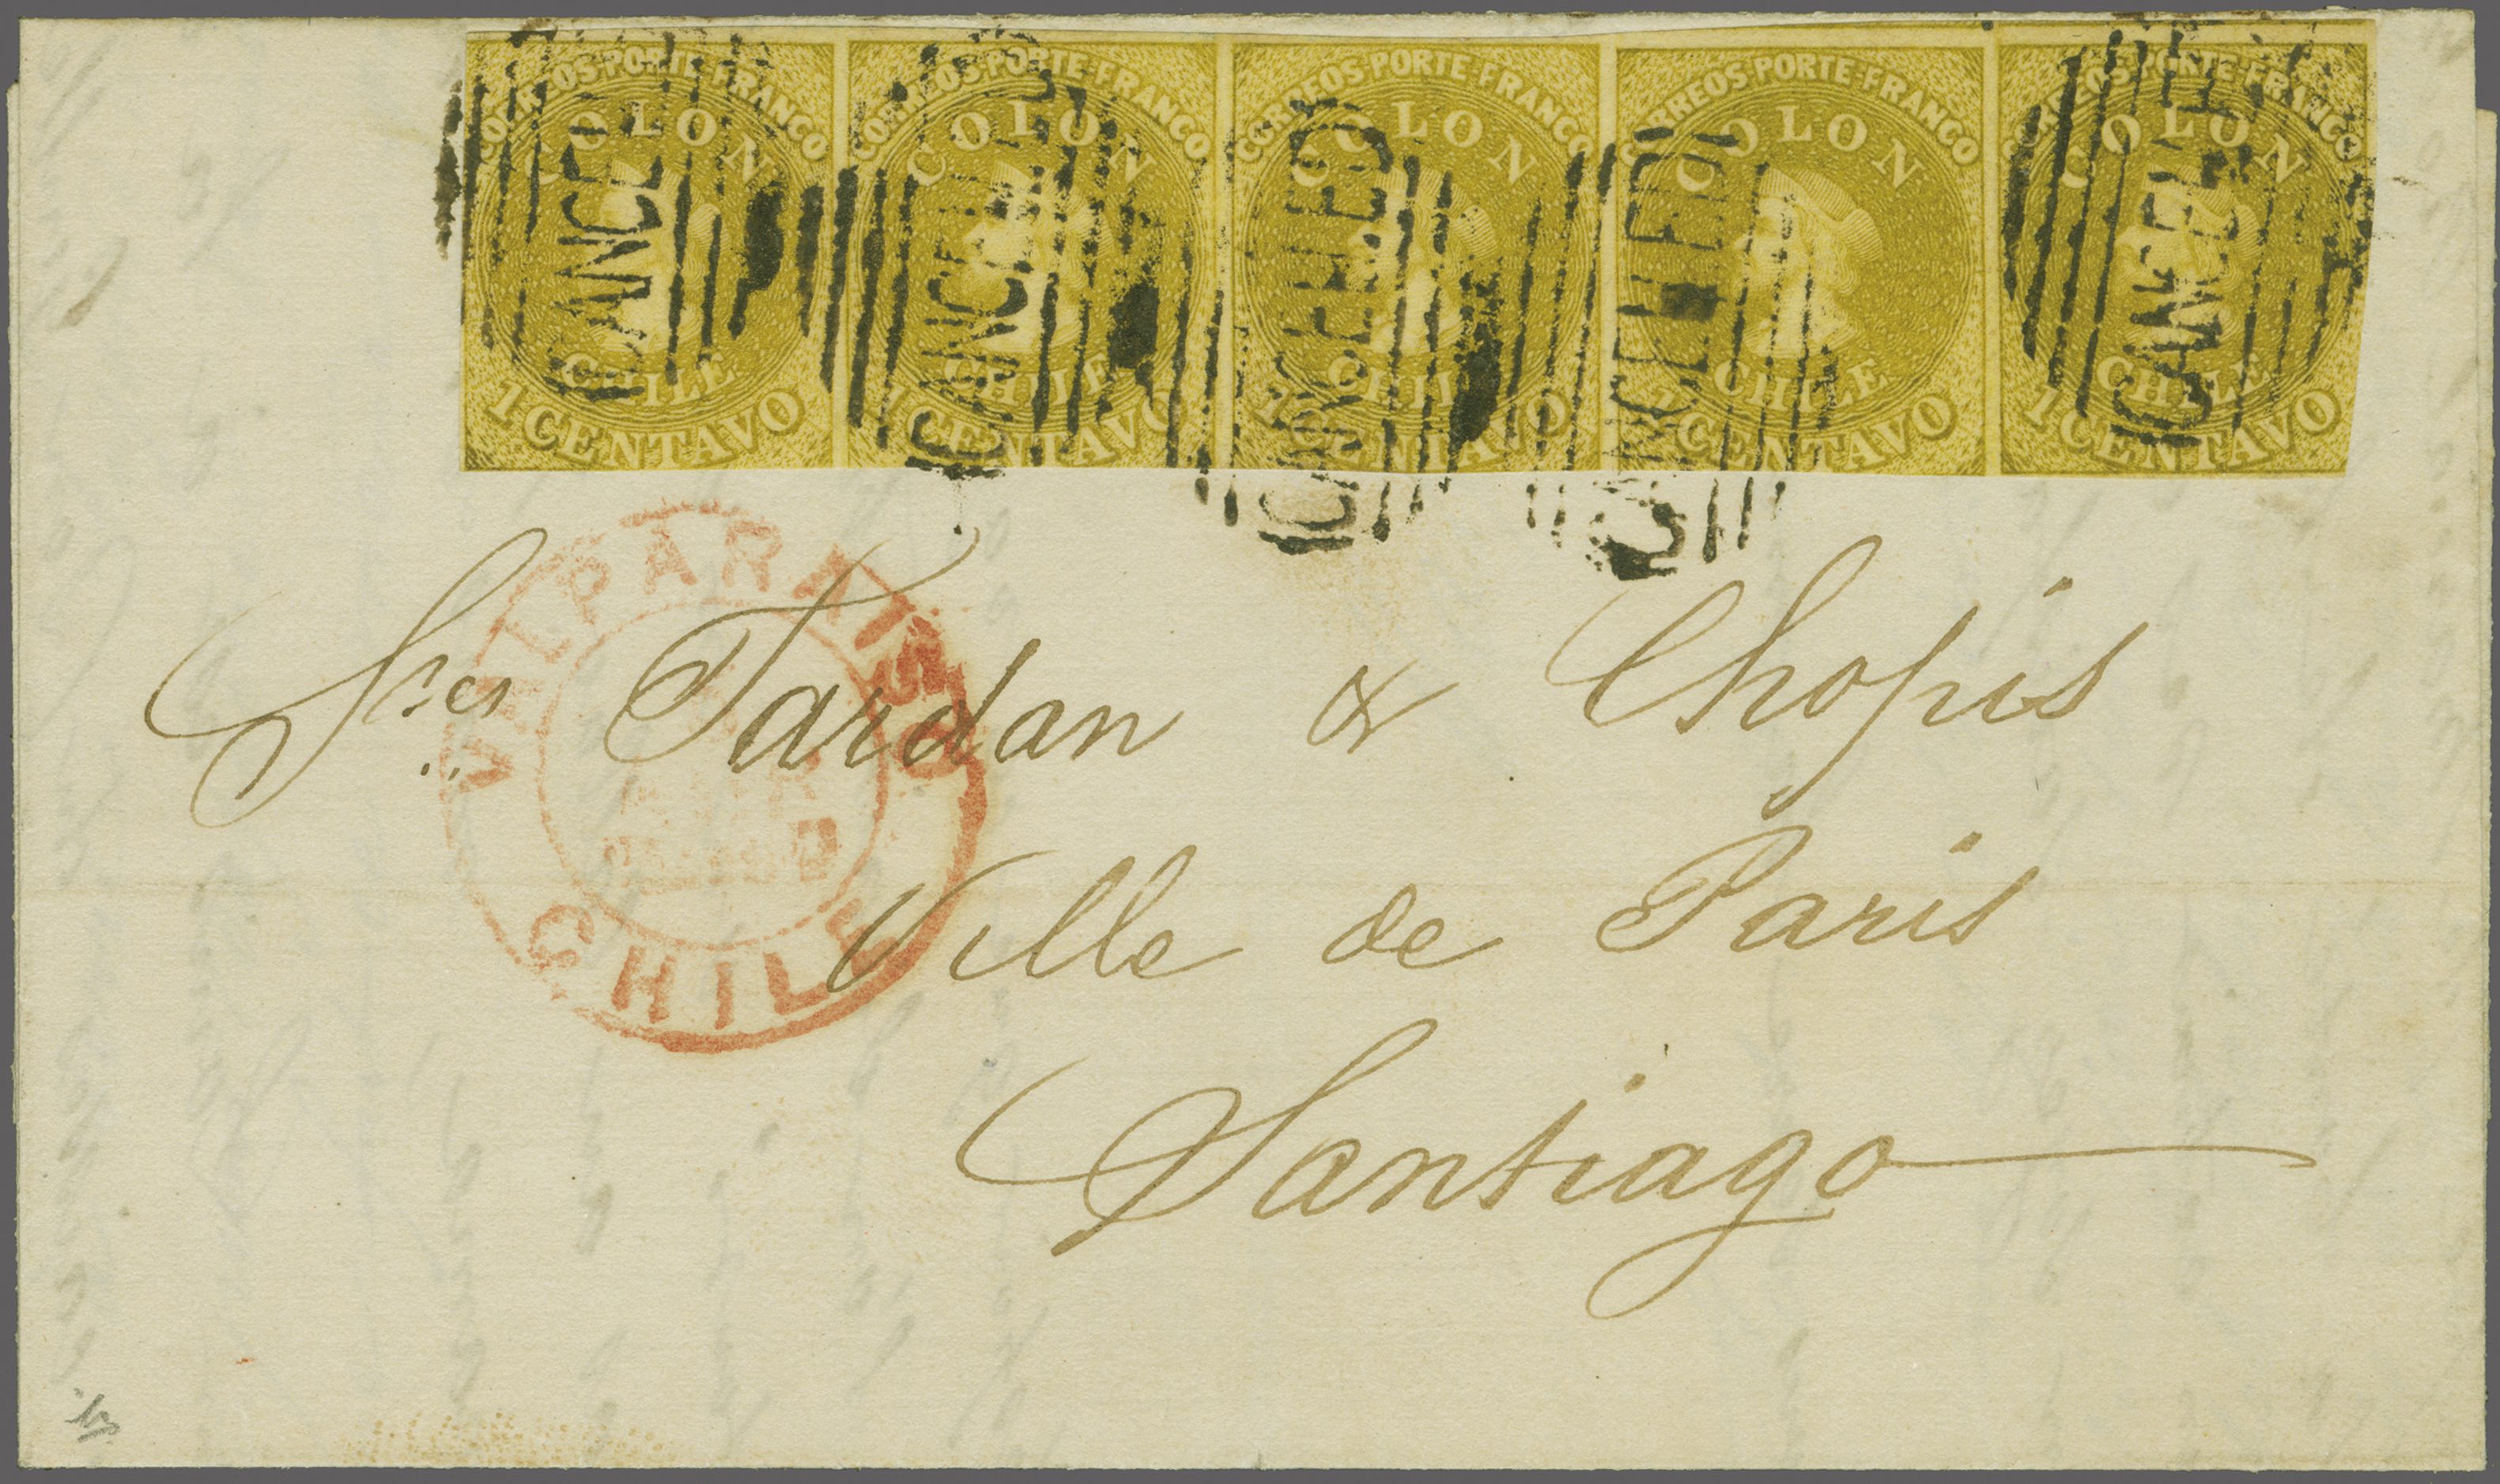 CORREOS PORTE FRANCO CORREOS PORTE FRANCO CORREOS PORTE FRANCO CORREOS PORTE FRANCO CORREOS PORTE FRANCO
COLON COLON COLON COLON COLON
CHILE CHILE CHILE CHILE CHILE
1 CENTAVO 1 CENTAVO 1 CENTAVO 1 CENTAVO 1 CENTAVO
CANCELLED CANCELLED CANCELLED CANCELLED CANCELLED
VALPARAISO
CHILE
Sres Tardan & Chopis
Ville de Paris
Santiago